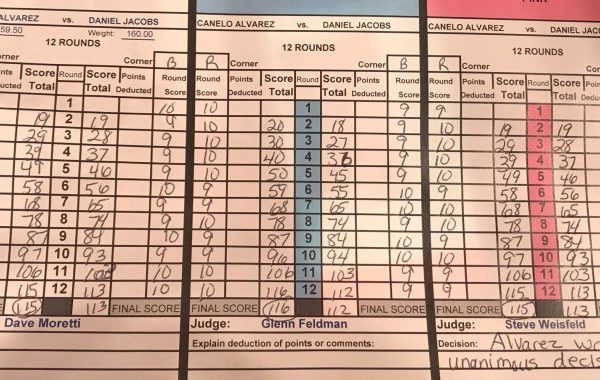 ALVAREZ vs. DANIEL JACOBS CANELO ALVAREZ vs. DANIEL JACOBS CANELO ALVAREZ vs. DANIEL JACO
59.50 Weight: 160.00
12 ROUNDS 12 ROUNDS 12 ROUNDS
Corner Corner B R Corner Corner B R Corner
Score Round Score Points Round Round Points Score Round Score Points Round Round Points Score Round Score Points
ucted Total Total Deducted Score Score Deducted Total Total Deducted Score Score Deducted Total Total Deducted
1 10 10 1 9 9 1
19 2 19 9 10 20 2 18 9 10 19 2 19
29 3 28 9 10 30 3 27 9 10 29 3 28
39 4 37 9 10 40 4 36 9 10 39 4 37
49 5 46 9 10 50 5 45 9 10 49 5 46
58 6 56 10 9 59 6 55 10 9 58 6 56
68 7 65 9 9 68 7 65 10 10 68 7 65
78 8 74 9 10 78 8 74 9 10 78 8 74
87 9 84 10 9 87 9 84 10 9 87 9 84
97 10 93 9 9 96 10 94 9 10 97 10 93
106 11 10 10 106 11 103 9 9 106 11 103
115 12 113 10 10 116 12 112 9 9 115 12 113
115 113 FINAL SCORE FINAL SCORE 116 112 FINAL SCORE FINAL SCORE 115 113
Dave Moretti Judge: Glenn Feldman Judge: Steve Weisfeld
Explain deduction of points or comments: Decision: Alvarez wo
unanimous decis